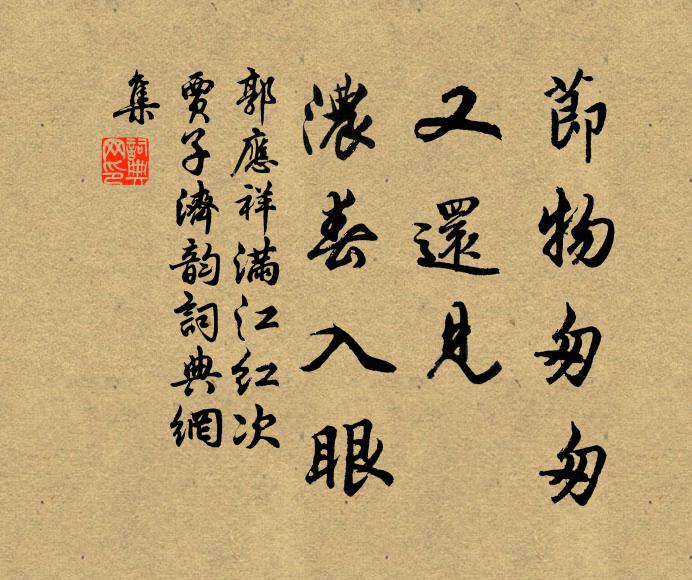 節物匆匆
又還見
濃春入眼
郭應祥滿江紅次
賈子濟韵詞典網
集
詞典
网印